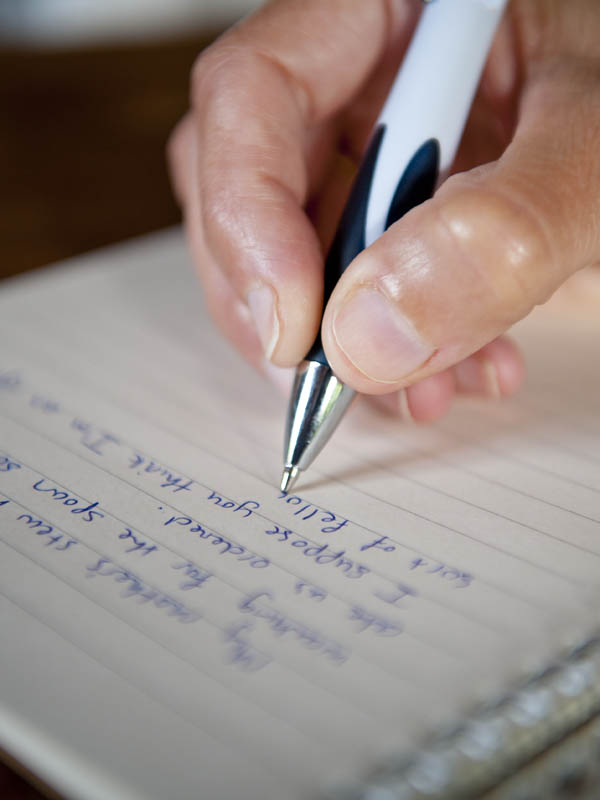 My mother's stew
for the spoon
ate as ordered.
I suppose you think I'm an
sort of fellow